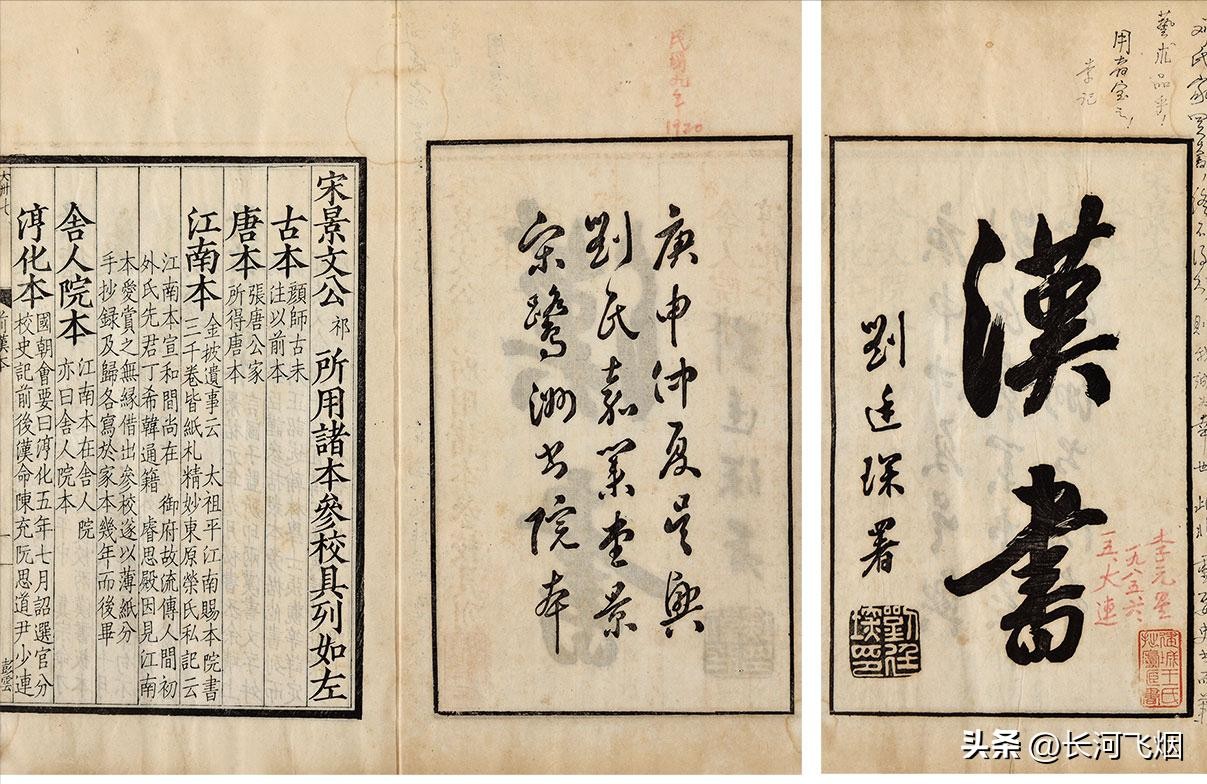 藝术品乎!
用者宝之!
李记
漢書
劉廷琛署
劉廷琛印
李元星
一九八五、六
一五、大连
民國九年
1920
庚申仲夏吳興
劉氏嘉業堂景
宋鷺洲书院本
宋景文公祁所用諸本參校具列如左
古本 顏師古未
注以前本
唐本 張唐公家
所得唐本
江南本 金披遺事云 太祖平江南賜本院書
三千卷皆紙札精妙東原榮氏私記云
江南本宣和間尚在 御府故流傳人間初
外氏先君丁希韓通籍 睿思殿因見江南
本愛賞之無緣借出參校遂以薄紙分
手抄録及歸各寫於家本幾年而後畢
舍人院本 江南本在舍人院
亦曰舍人院本
淳化本 國朝會要曰淳化五年七月詔選官分
校史記前後漢命陳充阮思道尹少連
前漢本
彭雲
头条 @长河飞烟